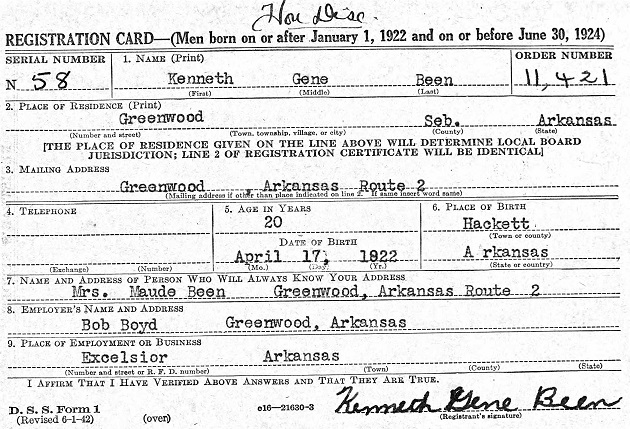 Hon Disc.
REGISTRATION CARD—(Men born on or after January 1, 1922 and on or before June 30, 1924)
SERIAL NUMBER 1. NAME (Print) ORDER NUMBER
N 58 Kenneth Gene Been 11,421
(First) (Middle) (Last)
2. PLACE OF RESIDENCE (Print)
Greenwood Seb. Arkansas
(Number and street) (Town, township, village, or city) (County) (State)
[THE PLACE OF RESIDENCE GIVEN ON THE LINE ABOVE WILL DETERMINE LOCAL BOARD
JURISDICTION; LINE 2 OF REGISTRATION CERTIFICATE WILL BE IDENTICAL]
3. MAILING ADDRESS
Greenwood, Arkansas Route 2
(Mailing address if other than place indicated on line 2. If same insert word same)
4. TELEPHONE 5. AGE IN YEARS 6. PLACE OF BIRTH
20 Hackett
(Town or county)
DATE OF BIRTH
April 17, 1822 A rkansas
(Exchange) (Number) (Mo.) (Day) (Yr.) (State or country)
7. NAME AND ADDRESS OF PERSON WHO WILL ALWAYS KNOW YOUR ADDRESS
Mrs. Maude Been Greenwood, Arkansas Route 2
8. EMPLOYER'S NAME AND ADDRESS
Bob Boyd Greenwood, Arkansas
9. PLACE OF EMPLOYMENT OR BUSINESS
Excelsior Arkansas
(Number and street or R. F. D. number) (Town) (County) (State)
I AFFIRM THAT I HAVE VERIFIED ABOVE ANSWERS AND THAT THEY ARE TRUE.
D. S. S. Form 1
(Revised 6-1-42) (over) e16—21630-3 Kenneth Gene Been
(Registrant's signature)